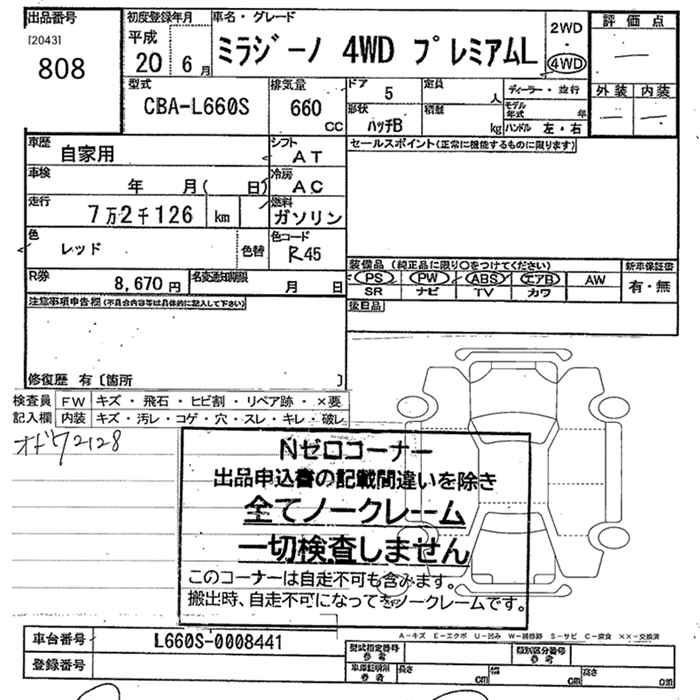 出品番号
[2043]
808
初度登録年月
平成
20 6月
車名・グレード
ミラジーノ 4WD プレミアムL
2WD
・
4WD
評価点
―
外装 内装
― ―
型式
CBA-L660S
排気量
660
CC
ドア
5
定員
人
ディーラー・並行
形状
ハッチB
積載
kg
モデル年式 年
ハンドル 左・右
車歴
自家用
シフト
AT
セールスポイント(正常に機能するものに限ります)
車検
年 月( 日)
冷房
AC
走行
7万2千126 km
燃料
ガソリン
色
レッド
色替
色コード
R45
装備品 (純正品に限り○をつけてください)
新車保証書
PS PW ABS エアB AW
SR ナビ TV カワ
有・無
R券
8,670円
名変通知期限
月 日
後日品
注意事項申告欄(不具合内容等は具体的に記入して下さい)
修復歴 有〔箇所 〕
検査員 FW キズ・飛石・ヒビ割・リペア跡・×要
記入欄 内装 キズ・汚レ・コゲ・穴・スレ・キレ・破レ
72128
Nゼロコーナー
出品申込書の記載間違いを除き
全てノークレーム
一切検査しません
このコーナーは自走不可も含みます。
搬出時、自走不可になってもノークレームです。
A-キズ E-エクボ U-凹み W-補修跡 S-サビ C-腐食 ××-交換済
車台番号
L660S-0008441
登録番号
型式指定番号
参考
類別区分番号
参考
車庫証明用
参考
長さ cm
幅 cm
高さ cm